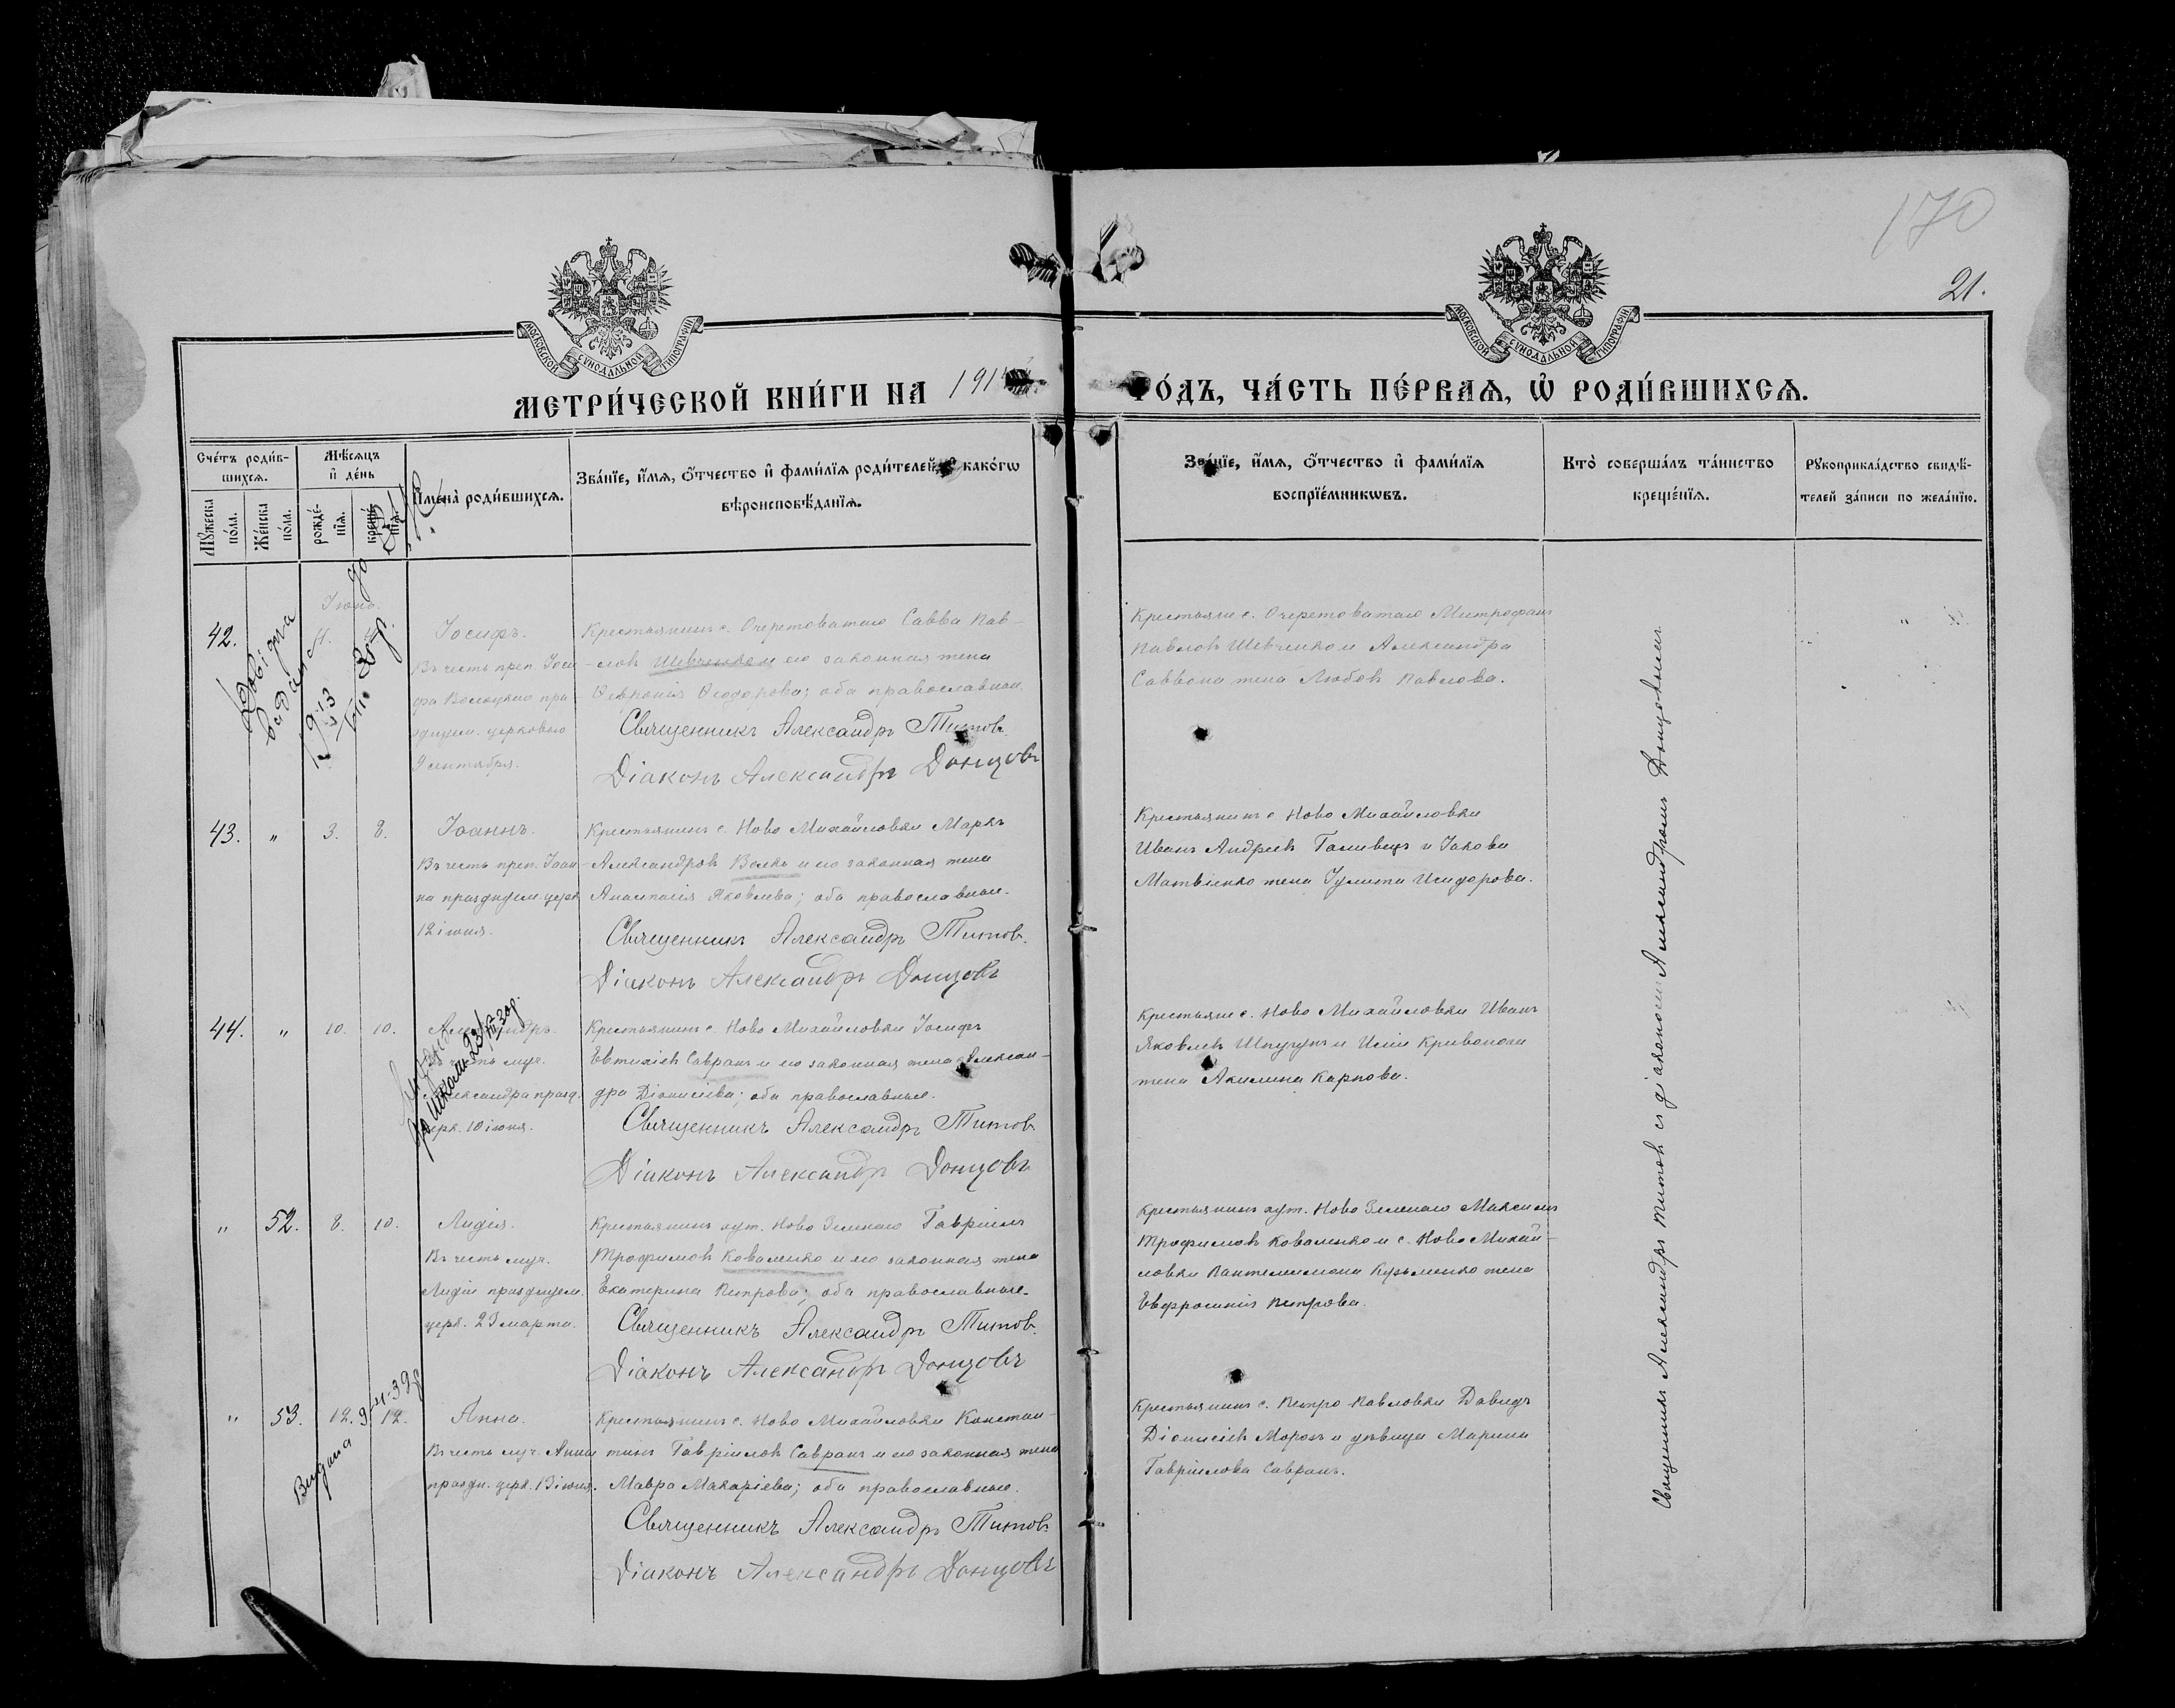 170
21.
МОСКОВСКОЙ СУНОДАЛЬНОЙ ТИПОГРАФІИ
МОСКОВСКОЙ СУНОДАЛЬНОЙ ТИПОГРАФІИ
МЕТРИ́ЧЕСКОЙ КНИ́ГИ НА 191
ГО́ДЪ, ЧА́СТЬ ПЕ́РВАѦ, Ѡ҆ РОДИ́ВШИХСѦ.
Сче́тъ роди́в-
шихсѧ.
Мѣ́сѧцъ
и҆ де́нь
Мꙋ́жеска
по́ла.
Же́нска
по́ла.
рожде́-
нїѧ.
креще́-
нїѧ.
Имена̀ роди́вшихсѧ.
Зва́нїе, и҆́мѧ, ѻ҆́тчество и҆ фами́лїѧ роди́телей, како́гѡ
вѣроисповѣ́данїѧ.
Зва́нїе, и҆́мѧ, ѻ҆́тчество и҆ фами́лїѧ
воспрїе́мникѡвъ.
Кто̀ соверша́лъ та́инство
креще́нїѧ.
Рꙋкоприкла́дство свидѣ́-
телей за́писи по жела́нїю.
Іюнь.
42.
4.
Іосифъ.
Въ честь преп. Іоси-
фа Волоцкаго пра-
здуем. церковью
9 сентября.
Крестьянинъ с. Очеретоватаго Савва Пав-
ловъ Шевченко и его законная жена
Ѳеврония Ѳеодорова; оба православные
Священникъ Александръ Титовъ.
Діаконъ Александръ Донцовъ
Крестьяне с. Очеретоватаго Митрофанъ
Павловъ Шевченко и Александра
Саввона жена Любовь Павлова.
43.
"
3.
8.
Іоаннъ.
Въ честь преп. Іоан-
на празднуем. церк.
12 іюня.
Крестьянинъ с. Ново Михайловки Маркъ
Александровъ Волкъ и его законная жена
Анастасія Яковлева; оба православные.
Священникъ Александръ Титовъ.
Діаконъ Александръ Донцовъ
Крестьянинъ с. Ново Михайловки
Иванъ Андреевъ Галивецъ и Іакова
Матвіенко жена Іулита Исидорова.
44.
"
10.
10.
Александръ.
Въ честь муч.
Александра празд.
церк. 10 іюня.
Крестьянинъ с. Ново Михайловки Іосифъ
Евтихіевъ Савранъ и его законная жена Алексан-
дра Діонисіева; оба православные.
Священникъ Александръ Титовъ
Діаконъ Александръ Донцовъ
Крестьяне с. Ново Михайловки Иванъ
Яковлевъ и Иліи Кривоноги
жена Акилина Карпова.
"
52.
8.
10.
Лидія.
Въ честь муч.
Лидіи празднуем.
церк. 23 марта.
Крестьянинъ хут. Ново Зеленаго Гавріилъ
Трофимовъ Коваленко и его законная жена
Екатерина Петрова; оба православные.
Священникъ Александръ Титовъ.
Діаконъ Александръ Донцовъ
Крестьянинъ хут. Ново Зеленаго Максимъ
Трофимовъ Коваленко и с. Ново Михай-
ловки Пантелеимона Кузьменко жена
Евфросинія Петрова.
"
53.
12.
12.
Анна.
Въ честь муч. Анны
праздн. церк. 13 іюня.
Крестьянинъ с. Ново Михайловки Констан-
тинъ Гавріиловъ Савранъ и его законная жена
Мавра Макаріева; оба православные.
Священникъ Александръ Титовъ
Діаконъ Александръ Донцовъ
Крестьянинъ с. Петро Павловки Давидъ
Діонисіевъ Морозъ и дѣвица Марина
Гавріилова Савранъ.
Священникъ Александръ Титовъ съ діакономъ Александромъ Донцовымъ